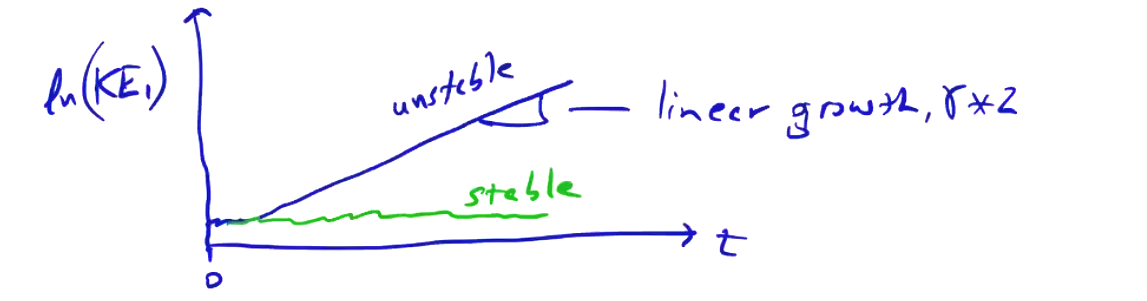 ln(KE₁)
unstable
linear growth, γ*2
stable
t
0